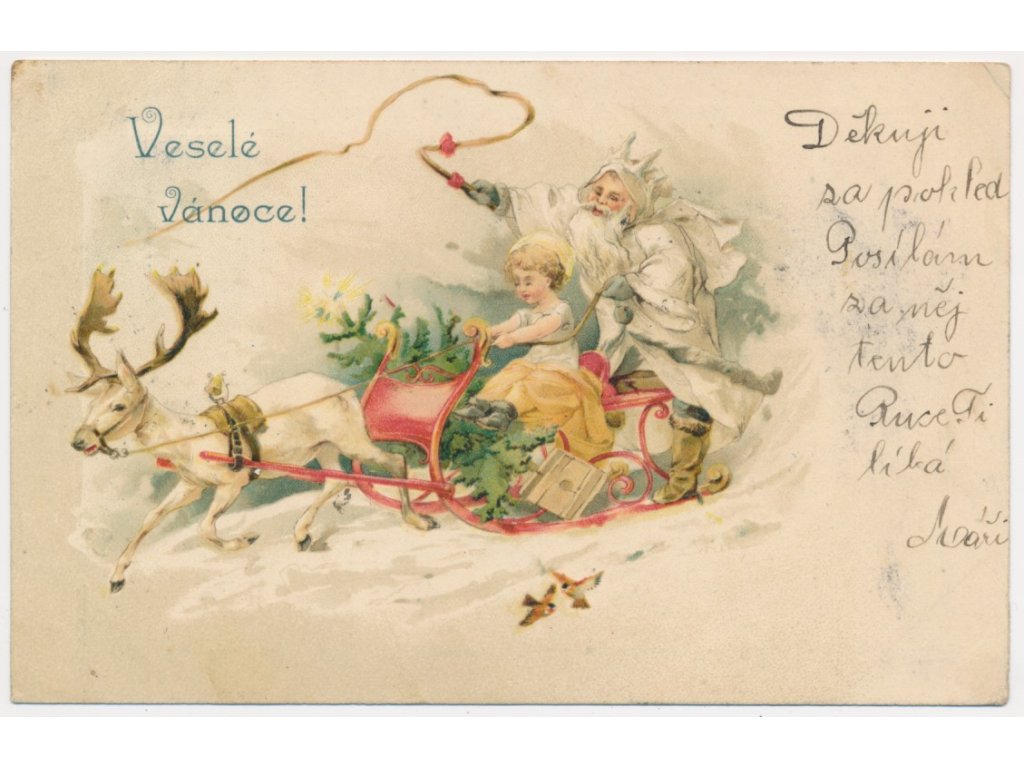 Veselé
vánoce!
Děkuji
za pohled
Posílám
za něj
tento
Ruce Ti
líbá
Máři